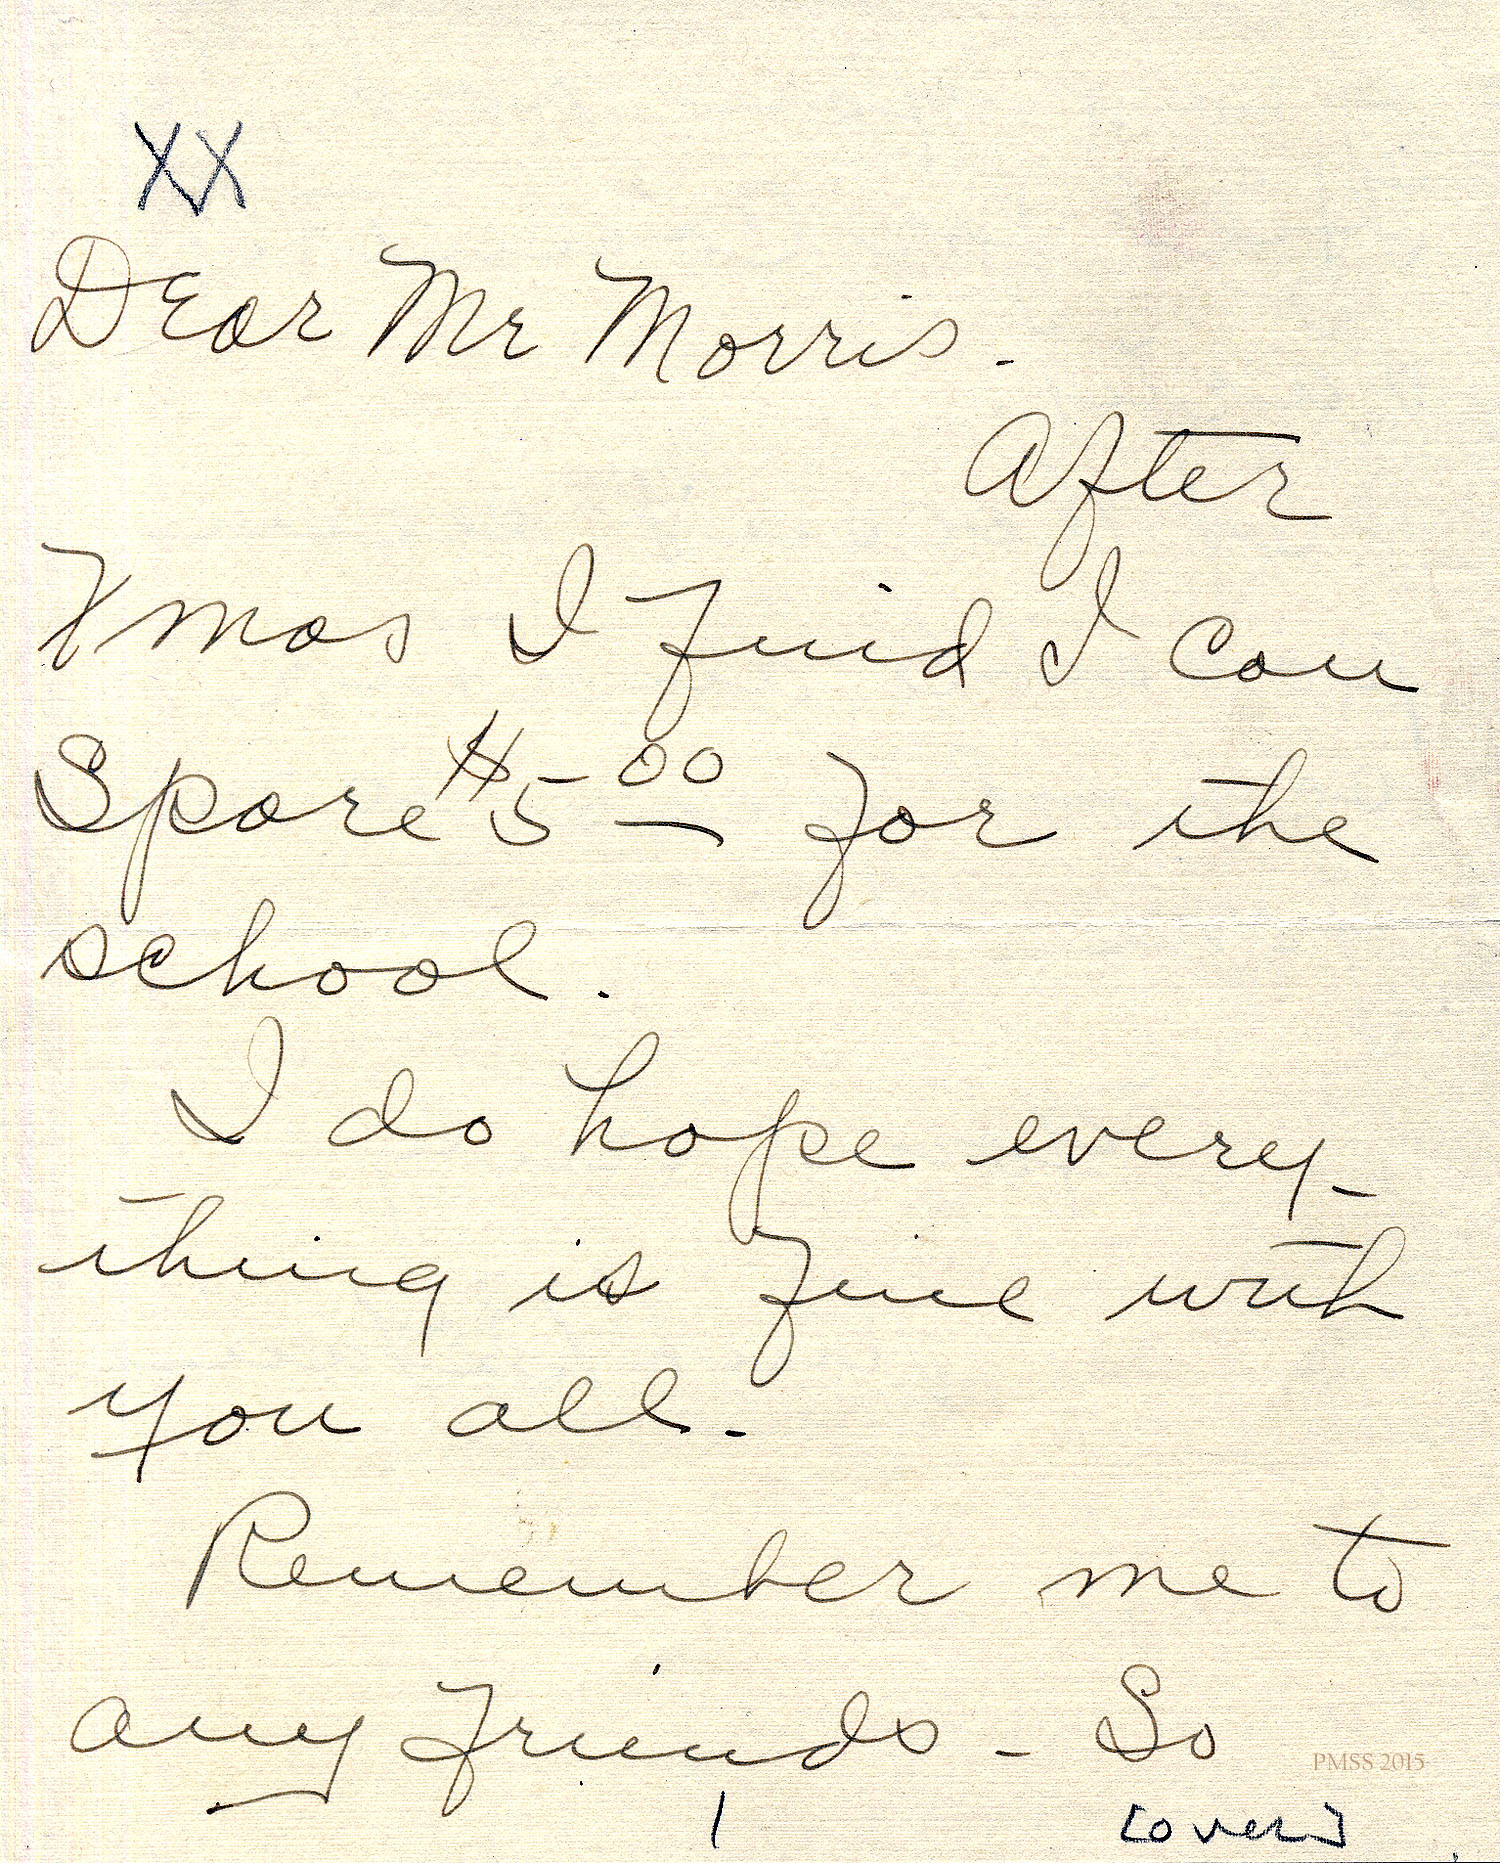 XX
Dear Mr Morris -
After
Xmas I find I can
Spare $5.00 for the
school.
I do hope every-
thing is fine with
you all -
Remember me to
any friends - So
PMSS 2015
1 [over]